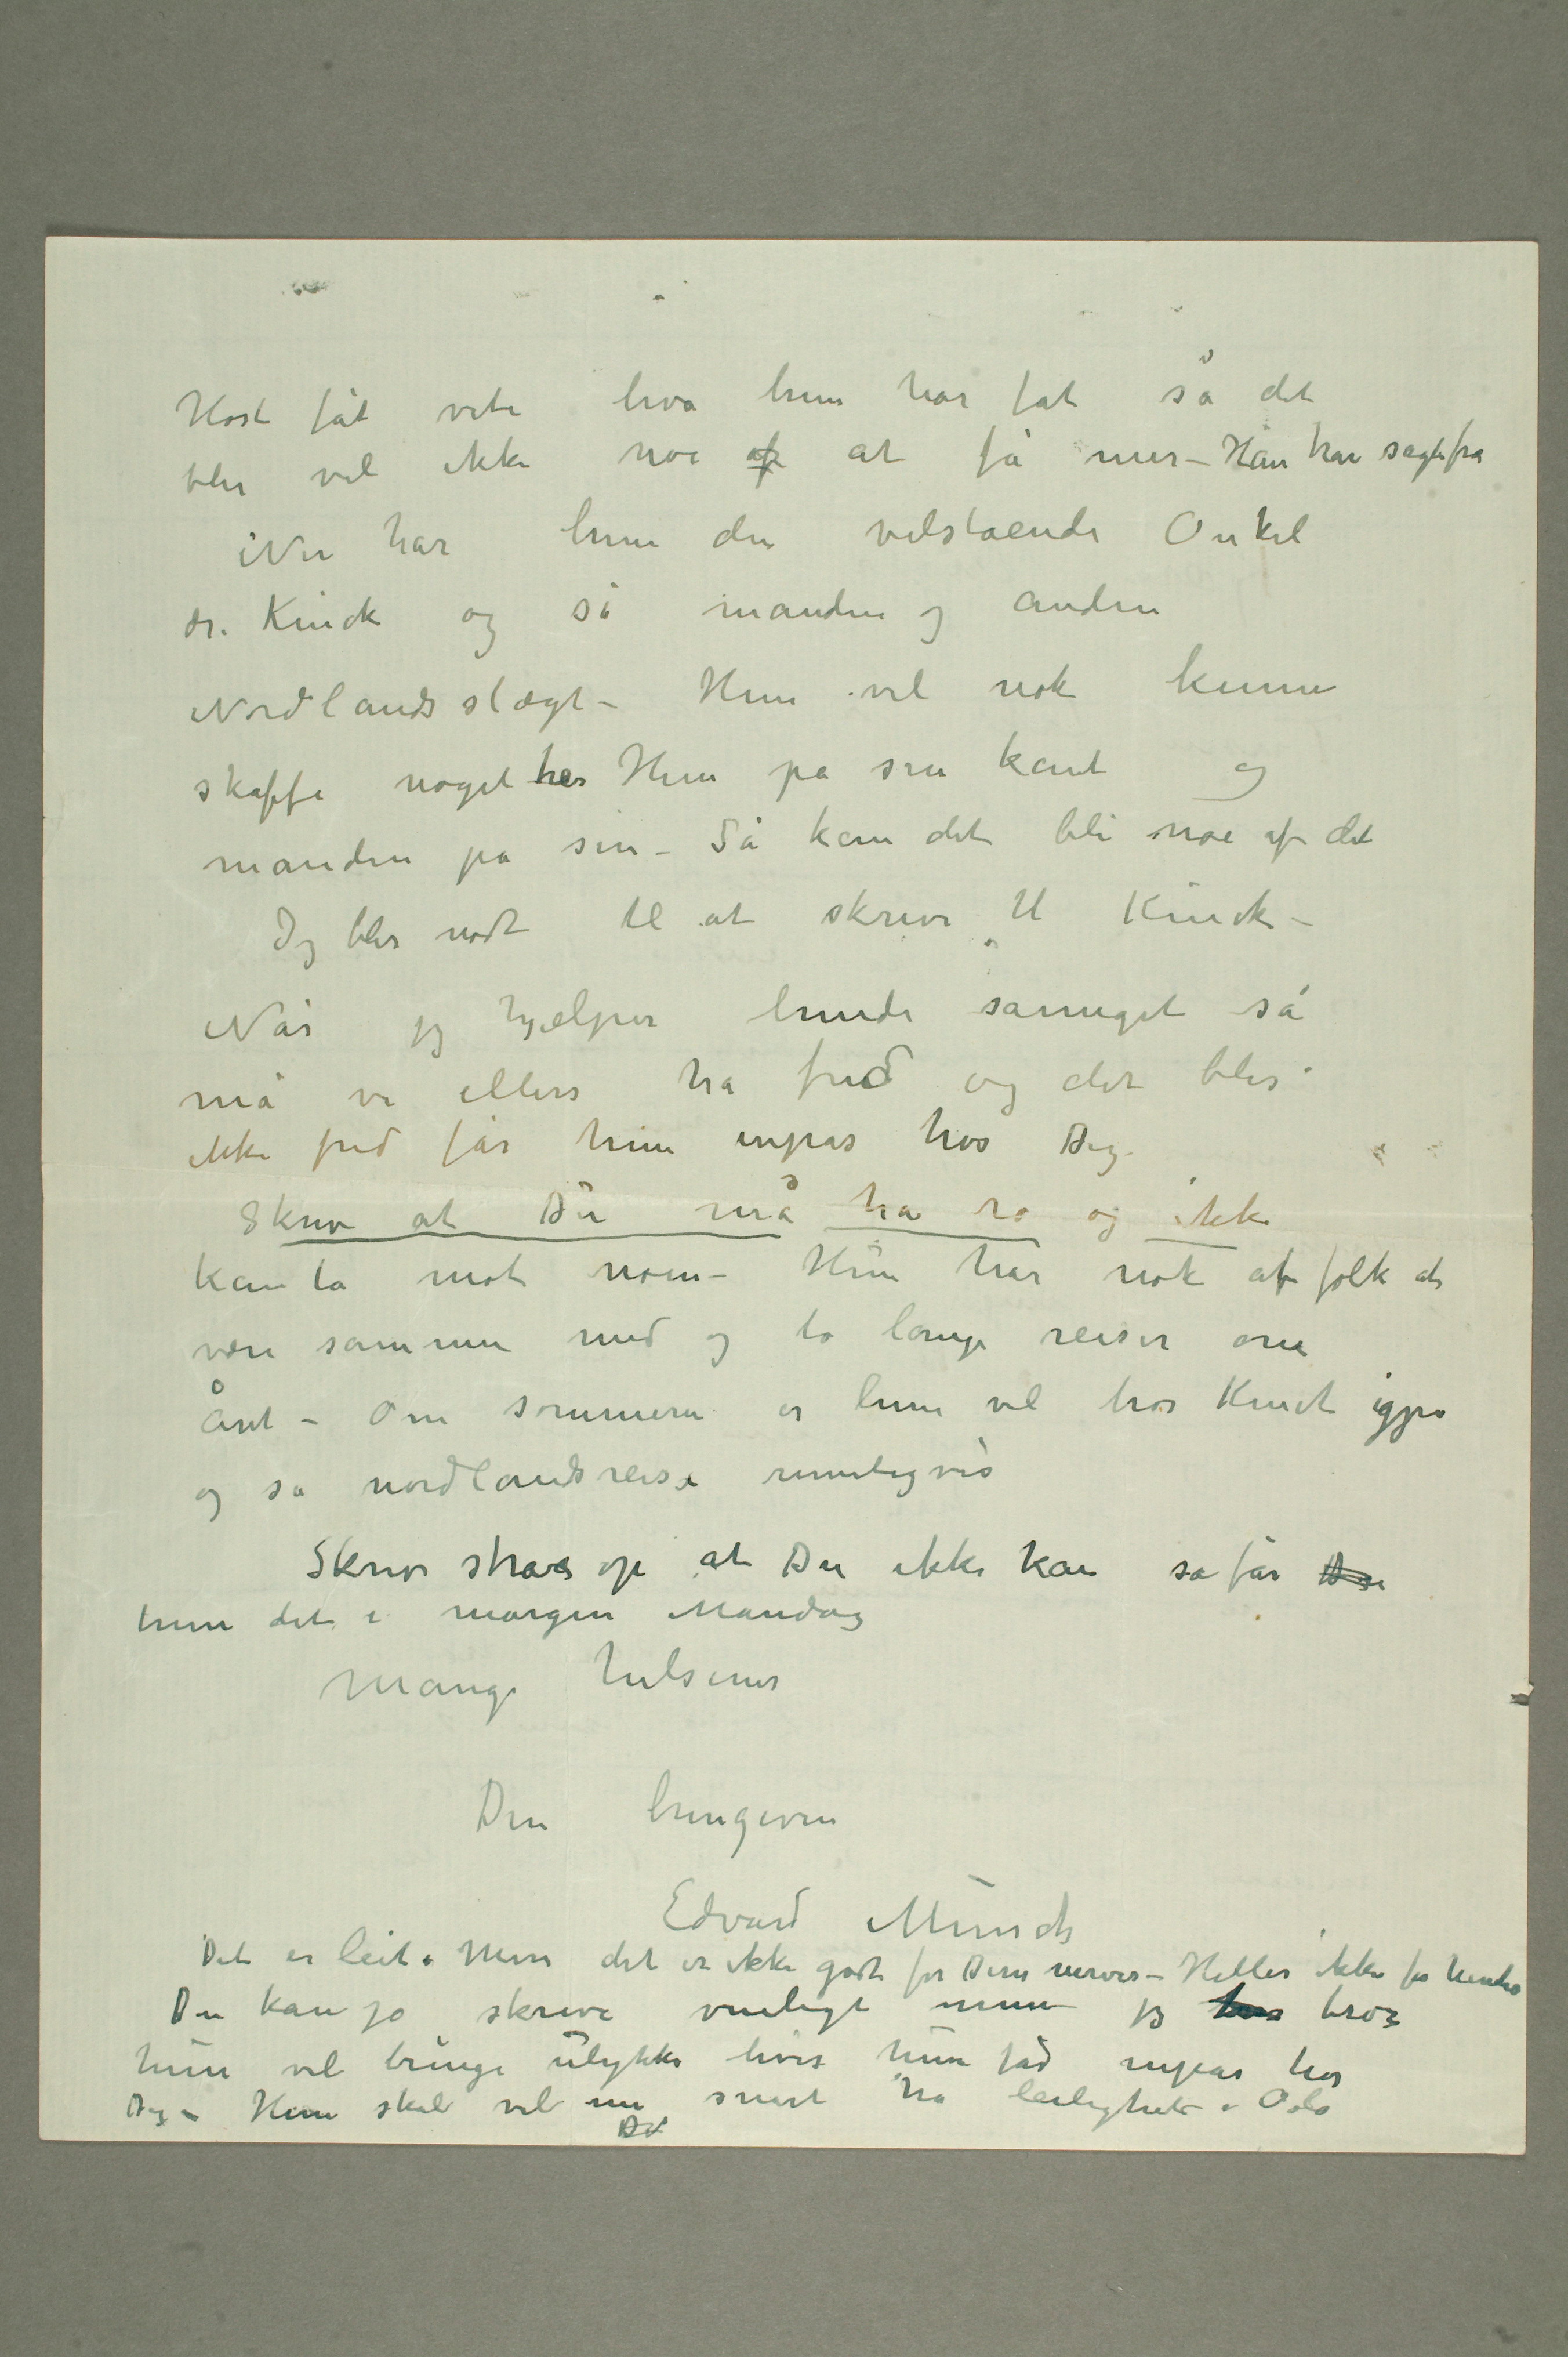 Høst fåt vite hva hun har fåt så det
blir vel ikke noe af at få mer – Han har sagt fra
Nu har hun den velstående Onkel
dr. Kinck og så manden og anden
Nordlandsslægt – Hun vil nok kunne
skaffe noget her Hun på sin kant og
manden på sin – Så kan det bli noe af det
Jeg blir nødt til at skrive til Kinck –
Når jeg hjælper hende såmeget så
må vi ellers ha fred og det blir
ikke fred får hun inpas hos Dig
Skriv at Du må ha ro og ikke
kan ta mot noen – Hun har nok af folk at
være sammen med og to lange reiser om
året – Om sommeren er hun vel hos Kinck igjen
og så nordlandsreise rimeligvis
Skriv strax op at Du ikke kan så får Du
hun det i morgen Mandag
Mange hilsener
Din hengivne
Edvard Munch
Det er leit. Men det er ikke godt for Dine nerver – Heller ikke for hendes
Du kan jo skrive venligt men jeg tror
hun vil bringe ulykke hvis hun får inpas hos
Dig – Hun skal vel nu snart ha leilighet i Oslo